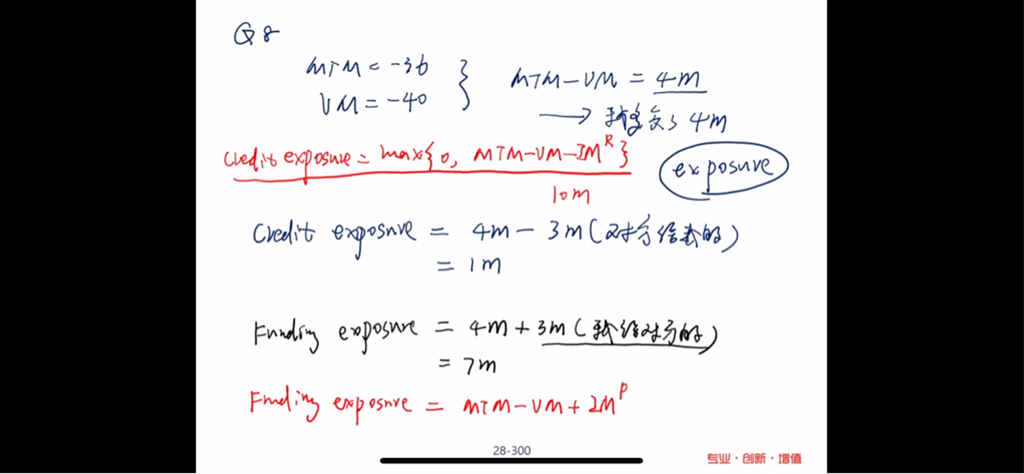 Q8
MTM = -36
VM = -40
MTM-VM = 4m
→ 我多交了 4m
Credit exposure = max{0, MTM-VM-IM^R}
10m
exposure
Credit exposure = 4m - 3m (对方给我的)
= 1m
Funding exposure = 4m + 3m (我给对方的)
= 7m
Funding exposure = MTM-VM+IM^P
28-300
专业·创新·增值